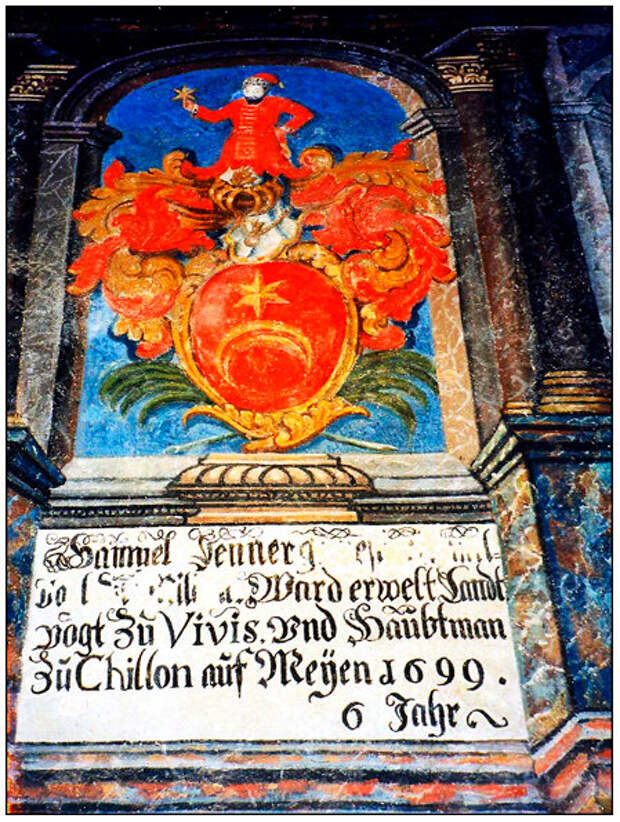 Samuel Jenner
Ward erwelt Landt
vogt Zů Vivis. vnd Haŭbtman
Zů Chillon aŭf Meÿen 1699.
6 Jahr